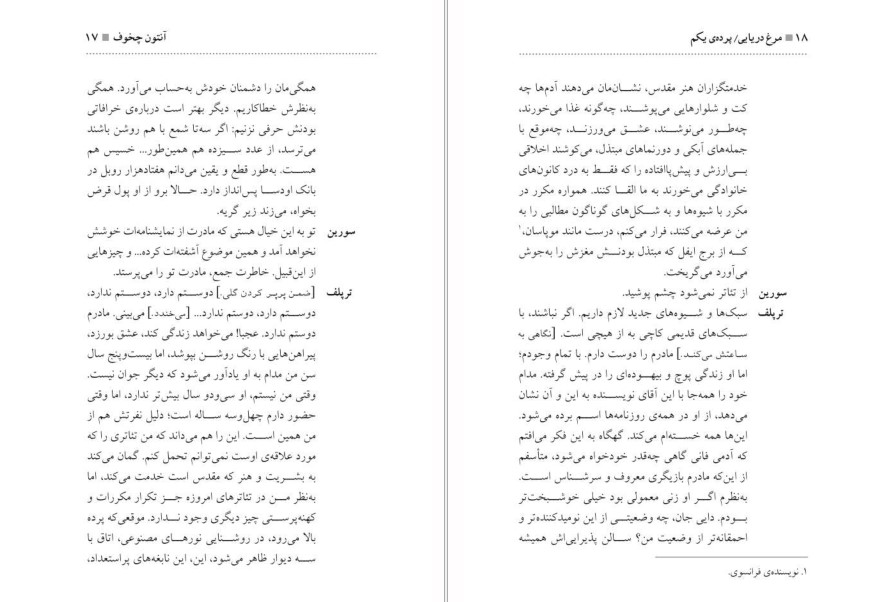 آنتون چخوف ■ ۱۷
همگی‌مان را دشمنان خودش به‌حساب می‌آورد. همگی
به‌نظرش خطاکاریم. دیگر بهتر است درباره‌ی خرافاتی
بودنش حرفی نزنیم: اگر سه‌تا شمع با هم روشن باشند
می‌ترسد، از عدد سیزده هم همین‌طور... خسیس هم
هست. به‌طور قطع و یقین می‌دانم هفتادهزار روبل در
بانک اودسا پس‌انداز دارد. حالا برو از او پول قرض
بخواه، می‌زند زیر گریه.
سورین تو به این خیال هستی که مادرت از نمایشنامه‌ات خوشش
نخواهد آمد و همین موضوع آشفته‌ات کرده... و چیزهایی
از این‌قبیل. خاطرت جمع، مادرت تو را می‌پرستد.
ترپلف [ضمن پرپر کردن گلی.] دوستم دارد، دوستم ندارد،
دوستم دارد، دوستم ندارد... [می‌خندد.] می‌بینی. مادرم
دوستم ندارد. عجبا! می‌خواهد زندگی کند، عشق بورزد،
پیراهن‌هایی با رنگ روشن بپوشد، اما بیست‌وپنج سال
سن من مدام به او یادآور می‌شود که دیگر جوان نیست.
وقتی من نیستم، او سی‌ودو سال بیش‌تر ندارد، اما وقتی
حضور دارم چهل‌وسه ساله است؛ دلیل نفرتش هم از
من همین است. این را هم می‌داند که من تئاتری را که
مورد علاقه‌ی اوست نمی‌توانم تحمل کنم. گمان می‌کند
به بشریت و هنر که مقدس است خدمت می‌کند، اما
به‌نظر من در تئاترهای امروزه جز تکرار مکررات و
کهنه‌پرستی چیز دیگری وجود ندارد. موقعی‌که پرده
بالا می‌رود، در روشنایی نورهای مصنوعی، اتاق با
سه دیوار ظاهر می‌شود، این، این نابغه‌های پراستعداد،
۱۸ ■ مرغ دریایی/ پرده‌ی یکم
خدمتگزاران هنر مقدس، نشان‌مان می‌دهند آدم‌ها چه
کت و شلوارهایی می‌پوشند، چه‌گونه غذا می‌خورند،
چه‌طور می‌نوشند، عشق می‌ورزند، چه‌موقع با
جمله‌های آبکی و دورنماهای مبتذل، می‌کوشند اخلاقی
بی‌ارزش و پیش‌پاافتاده را که فقط به درد کانون‌های
خانوادگی می‌خورند به ما القا کنند. همواره مکرر در
مکرر با شیوه‌ها و به شکل‌های گوناگون مطالبی را به
من عرضه می‌کنند، فرار می‌کنم، درست مانند موپاسان،۱
که از برج ایفل که مبتذل بودنش مغزش را به‌جوش
می‌آورد می‌گریخت.
سورین از تئاتر نمی‌شود چشم پوشید.
ترپلف سبک‌ها و شیوه‌های جدید لازم داریم. اگر نباشند، با
سبک‌های قدیمی کاچی به از هیچی است. [نگاهی به
ساعتش می‌کند.] مادرم را دوست دارم. با تمام وجودم؛
اما او زندگی پوچ و بیهوده‌ای را در پیش گرفته. مدام
خود را همه‌جا با این آقای نویسنده به این و آن نشان
می‌دهد، از او در همه‌ی روزنامه‌ها اسم برده می‌شود.
این‌ها همه خسته‌ام می‌کند. گهگاه به این فکر می‌افتم
که آدمی فانی گاهی چه‌قدر خودخواه می‌شود، متأسفم
از این‌که مادرم بازیگری معروف و سرشناس است.
به‌نظرم اگر او زنی معمولی بود خیلی خوشبخت‌تر
بودم. دایی جان، چه وضعیتی از این نومیدکننده‌تر و
احمقانه‌تر از وضعیت من؟ سالن پذیرایی‌اش همیشه
۱. نویسنده‌ی فرانسوی.